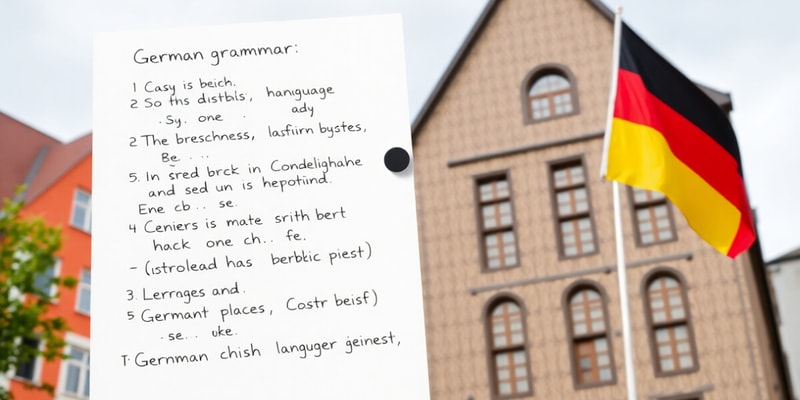 German grammar:
1 Casy is beich.
2 So ths distbls, hanguage
. Sy. one . ady
2 The breschness, lasfiirn bystes,
Be . . .
5. In sred brck in Condelighahe
and sed un is hepotind.
Ene cb . . se.
4 Ceniers is mate srith bert
hack one ch. . fe.
- (istrolead has berbkic piest)
3. Lerrages and.
5 Germant places, Costr beisf)
. se. . oke.
T. Gernman chish languger geinest,